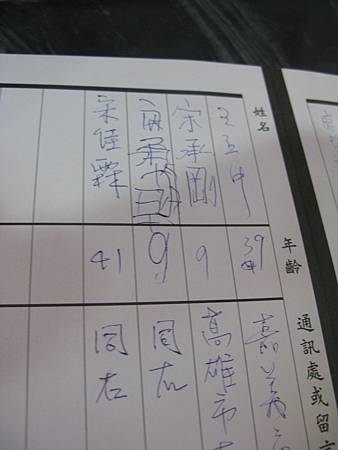 姓名
年齡
通訊處或留言
39
嘉義
宋承剛
9
高雄市
9
同左
宋佳霖
41
同左